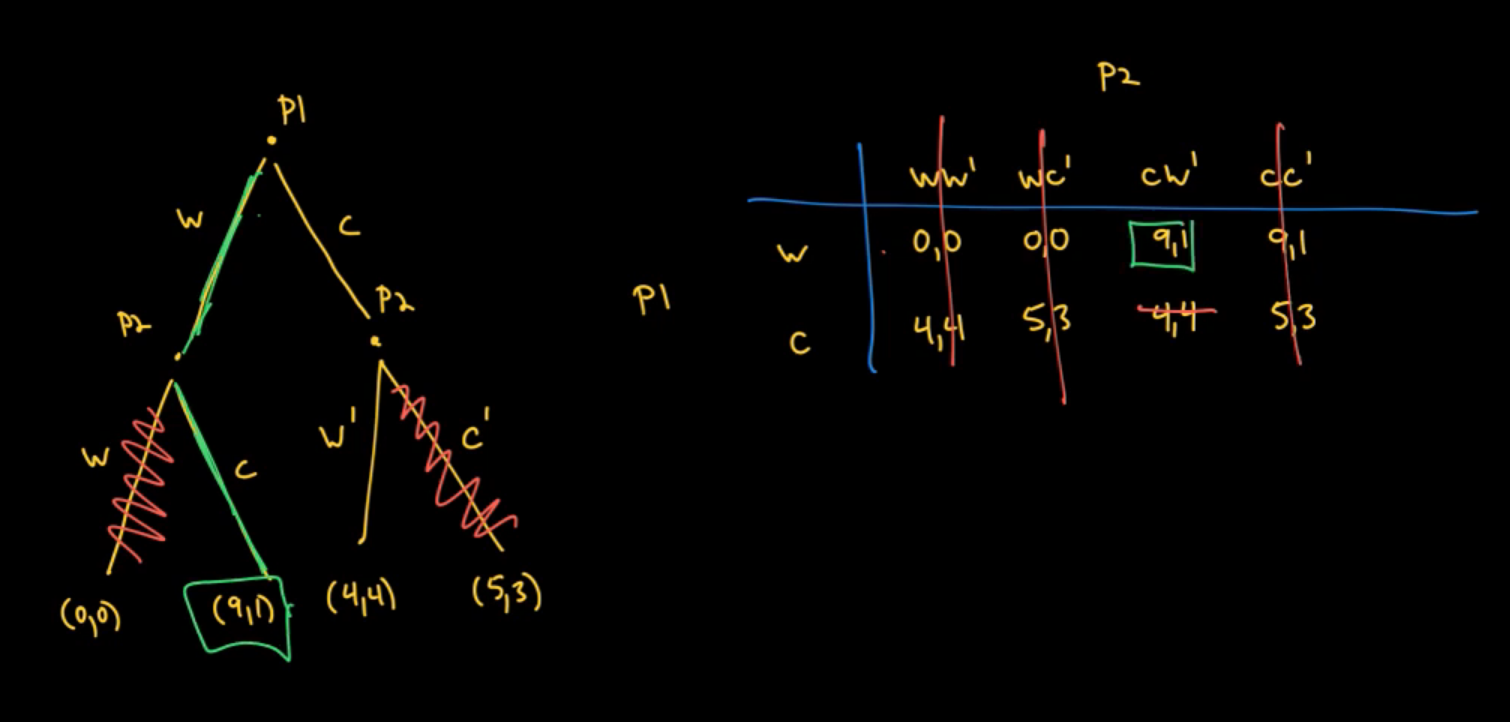 P1
W
C
P2
P2
W
C
W'
C'
(0,0)
(9,1)
(4,4)
(5,3)
P2
WW' WC' CW' CC'
P1
W 0,0 0,0 9,1 9,1
C 4,4 5,3 4,4 5,3